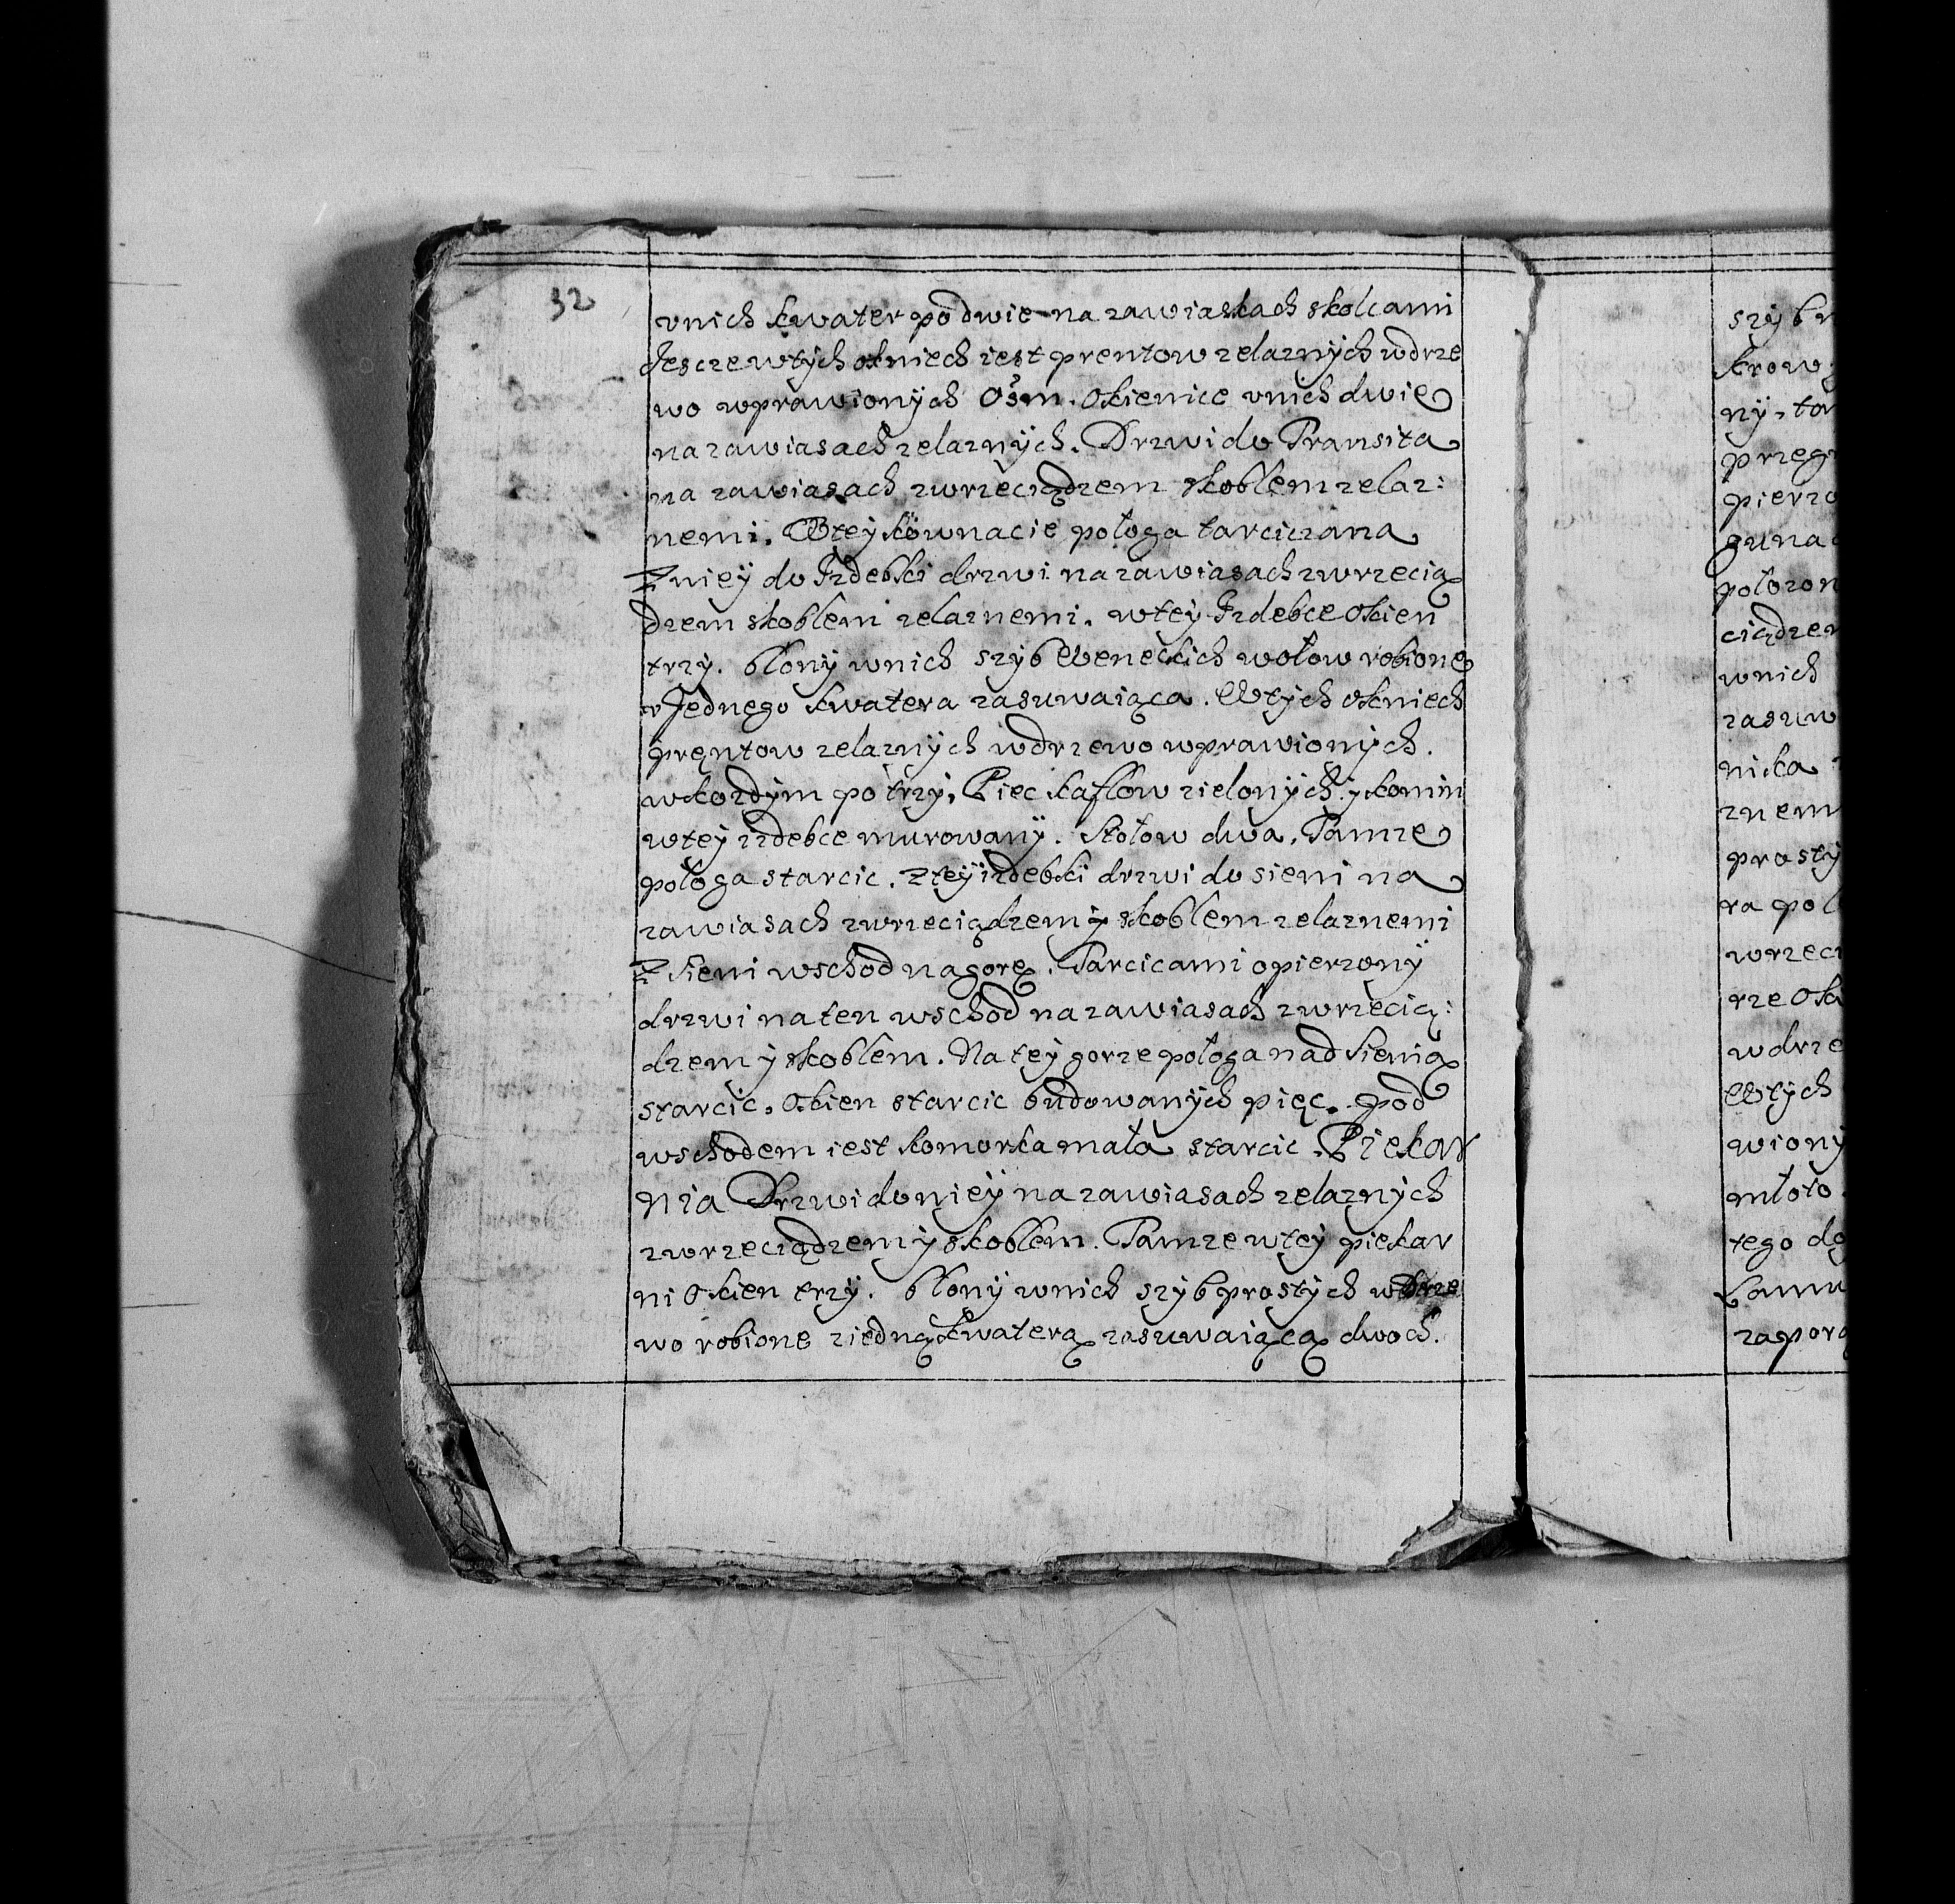 32
vnich kwater po dwie na zawiaskach skolcami
Jescze wtych okniech iest prentow zelaznych wdrze
wo wprawionych Osm. Okienice vnich dwie
na zawiasach zelaznÿch. Drzwi do Transita
na zawiasach zwrzeciądzem skoblem zelaz:
nemi. Wtey kownacie połoga tarciczana
Z niey do Izdebki drzwi na zawiasach zwrzecią
dzem skoblem zelaznemi. wtey Izdebce Okien
trzy. błony wnich szyb Weneckich wołow robione
v Jednego kwatera zasuwaiąca. Wtych okniech
prętow zelaznych wdrzewo wprawionych.
wkozdym po trzy, Piec kaflow zielonych y komin
wtey izdebce murowanÿ. Stołow dwa. Tamze
połoga starcic. Z teÿ izdebki drzwi do sieni na
zawiasach zwrzeciądzem y skoblem zelaznemi
Z Sieni wschod na gorę. Tarcicami opierzonÿ
drzwi na ten wschod na zawiasach zwrzecią:
dzem y skoblem. Na tey gorze połoga nad Sienią
starcic. Okien starcic budowanych pięc. pod
wschodem iest komorka mała starcic. Piekar
nia Drzwi do nieÿ na zawiasach zelaznych
zwrzeciądzem y skoblem. Tamze wtey piekar
ni Okien trzy. błony wnich szyb prostych wdrze
wo robione ziedną kwaterą zasuwaiącą dwoch.
szyb
krow
ny, 
przeg
pierz
guna
połozon
ciądzem
wnich
zasuw
nika
znem
prosty
ra poł
wrzeci
rze Ok
wdrze
Wtych
wiony
młoto
tego do
zapor